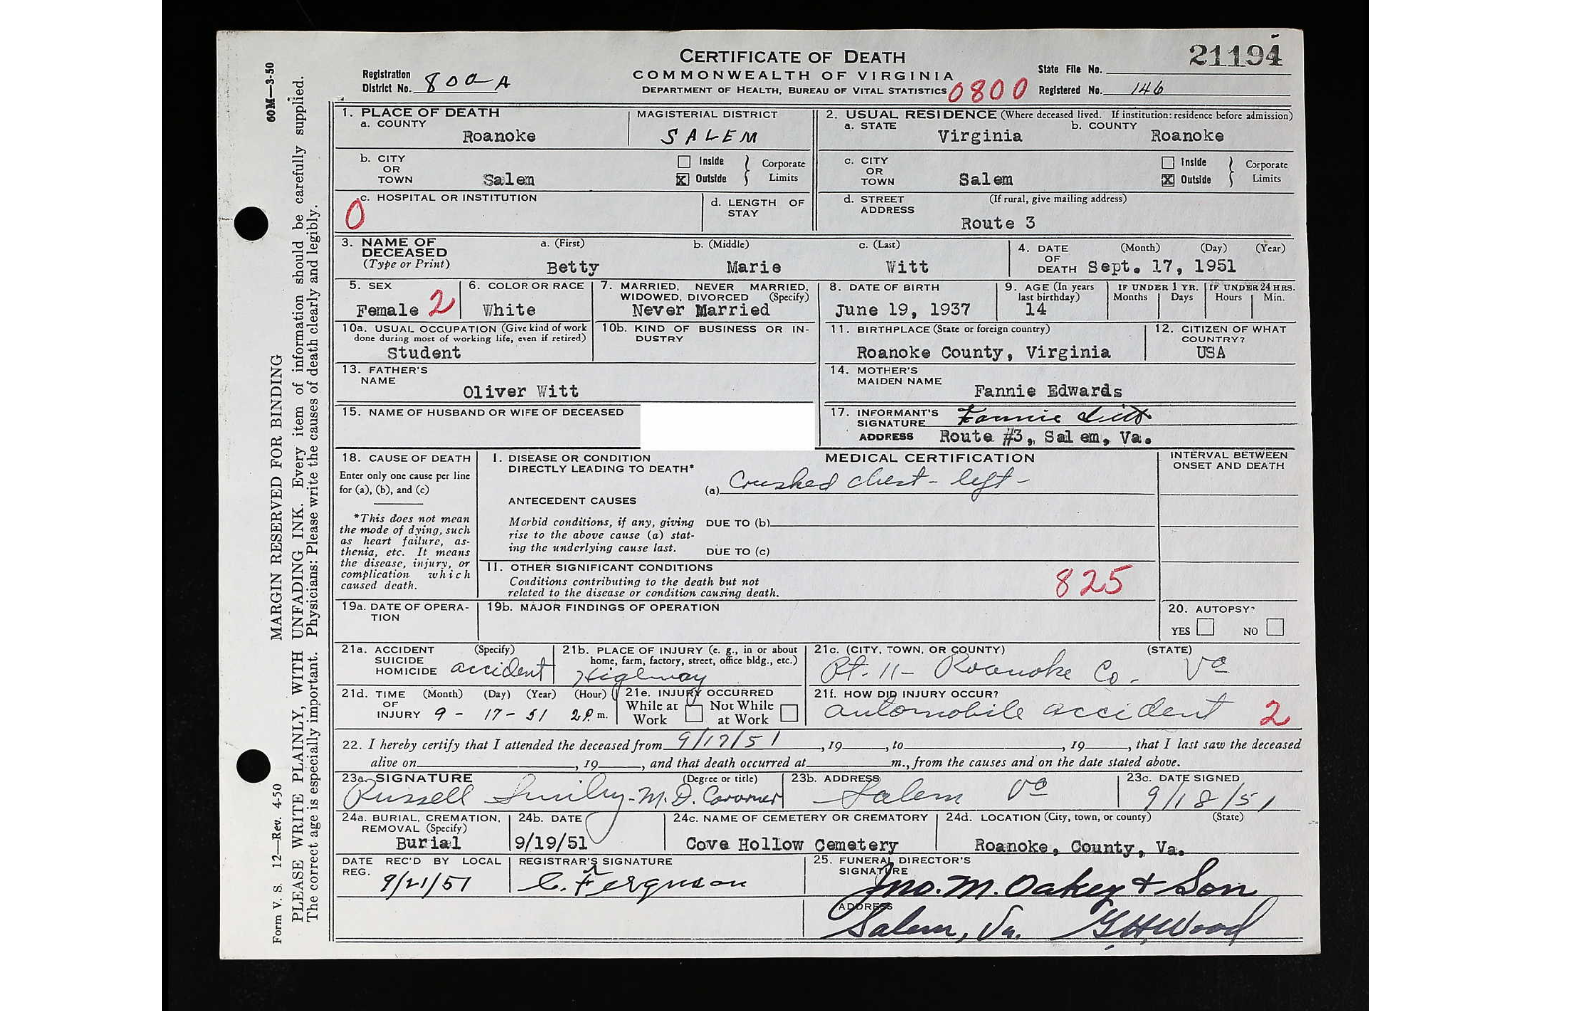 CERTIFICATE OF DEATH
21194
COMMONWEALTH OF VIRGINIA
State File No.
Registration District No. 800-A
DEPARTMENT OF HEALTH, BUREAU OF VITAL STATISTICS 0800
Registered No. 146
1. PLACE OF DEATH
a. COUNTY Roanoke
MAGISTERIAL DISTRICT SALEM
2. USUAL RESIDENCE (Where deceased lived. If institution: residence before admission)
a. STATE Virginia b. COUNTY Roanoke
b. CITY OR TOWN Salem
Inside
☒ Outside
Corporate Limits
c. CITY OR TOWN Salem
Inside
☒ Outside
Corporate Limits
c. HOSPITAL OR INSTITUTION
0
d. LENGTH OF STAY
d. STREET ADDRESS (If rural, give mailing address)
Route 3
3. NAME OF DECEASED (Type or Print)
a. (First) b. (Middle) c. (Last)
Betty Marie Witt
4. DATE OF DEATH (Month) (Day) (Year)
Sept. 17, 1951
5. SEX
Female 2
6. COLOR OR RACE
White
7. MARRIED, NEVER MARRIED, WIDOWED, DIVORCED (Specify)
Never Married
8. DATE OF BIRTH
June 19, 1937
9. AGE (In years last birthday)
14
IF UNDER 1 YR. Months Days
IF UNDER 24 HRS. Hours Min.
10a. USUAL OCCUPATION (Give kind of work done during most of working life, even if retired)
Student
10b. KIND OF BUSINESS OR INDUSTRY
11. BIRTHPLACE (State or foreign country)
Roanoke County, Virginia
12. CITIZEN OF WHAT COUNTRY?
USA
13. FATHER'S NAME
Oliver Witt
14. MOTHER'S MAIDEN NAME
Fannie Edwards
15. NAME OF HUSBAND OR WIFE OF DECEASED
17. INFORMANT'S SIGNATURE Fannie Witt
ADDRESS Route #3, Salem, Va.
18. CAUSE OF DEATH
Enter only one cause per line for (a), (b), and (c)
*This does not mean the mode of dying, such as heart failure, asthenia, etc. It means the disease, injury, or complication which caused death.
MEDICAL CERTIFICATION
INTERVAL BETWEEN ONSET AND DEATH
I. DISEASE OR CONDITION DIRECTLY LEADING TO DEATH*
(a) Crushed chest - left -
ANTECEDENT CAUSES
Morbid conditions, if any, giving rise to the above cause (a) stating the underlying cause last.
DUE TO (b)
DUE TO (c)
II. OTHER SIGNIFICANT CONDITIONS
Conditions contributing to the death but not related to the disease or condition causing death.
825
19a. DATE OF OPERATION
19b. MAJOR FINDINGS OF OPERATION
20. AUTOPSY?
YES NO
21a. ACCIDENT SUICIDE HOMICIDE (Specify)
accident
21b. PLACE OF INJURY (e. g., in or about home, farm, factory, street, office bldg., etc.)
Highway
21c. (CITY, TOWN, OR COUNTY) (STATE)
Rt. 11 - Roanoke Co. Va
21d. TIME OF INJURY (Month) (Day) (Year) (Hour)
9 - 17 - 51 2 P. m.
21e. INJURY OCCURRED
While at Work
Not While at Work
21f. HOW DID INJURY OCCUR?
automobile accident 2
22. I hereby certify that I attended the deceased from 9/17/51, 19__, to____, 19__, that I last saw the deceased
alive on____, 19__, and that death occurred at____m., from the causes and on the date stated above.
23a. SIGNATURE (Degree or title)
Russell Smiley - M.D. Coroner
23b. ADDRESS
Salem Va
23c. DATE SIGNED
9/18/51
24a. BURIAL, CREMATION, REMOVAL (Specify)
Burial
24b. DATE
9/19/51
24c. NAME OF CEMETERY OR CREMATORY
Cove Hollow Cemetery
24d. LOCATION (City, town, or county) (State)
Roanoke, County, Va.
DATE REC'D BY LOCAL REG.
9/21/51
REGISTRAR'S SIGNATURE
C. Ferguson
25. FUNERAL DIRECTOR'S SIGNATURE
Jno. M. Oakey & Son
ADDRESS
Salem, Va. G.H. Wood
Form V. S. 12—Rev. 4-50
MARGIN RESERVED FOR BINDING
60M—3-50
PLEASE WRITE PLAINLY, WITH UNFADING INK. Every item of information should be carefully supplied.
The correct age is especially important. Physicians: Please write the causes of death clearly and legibly.